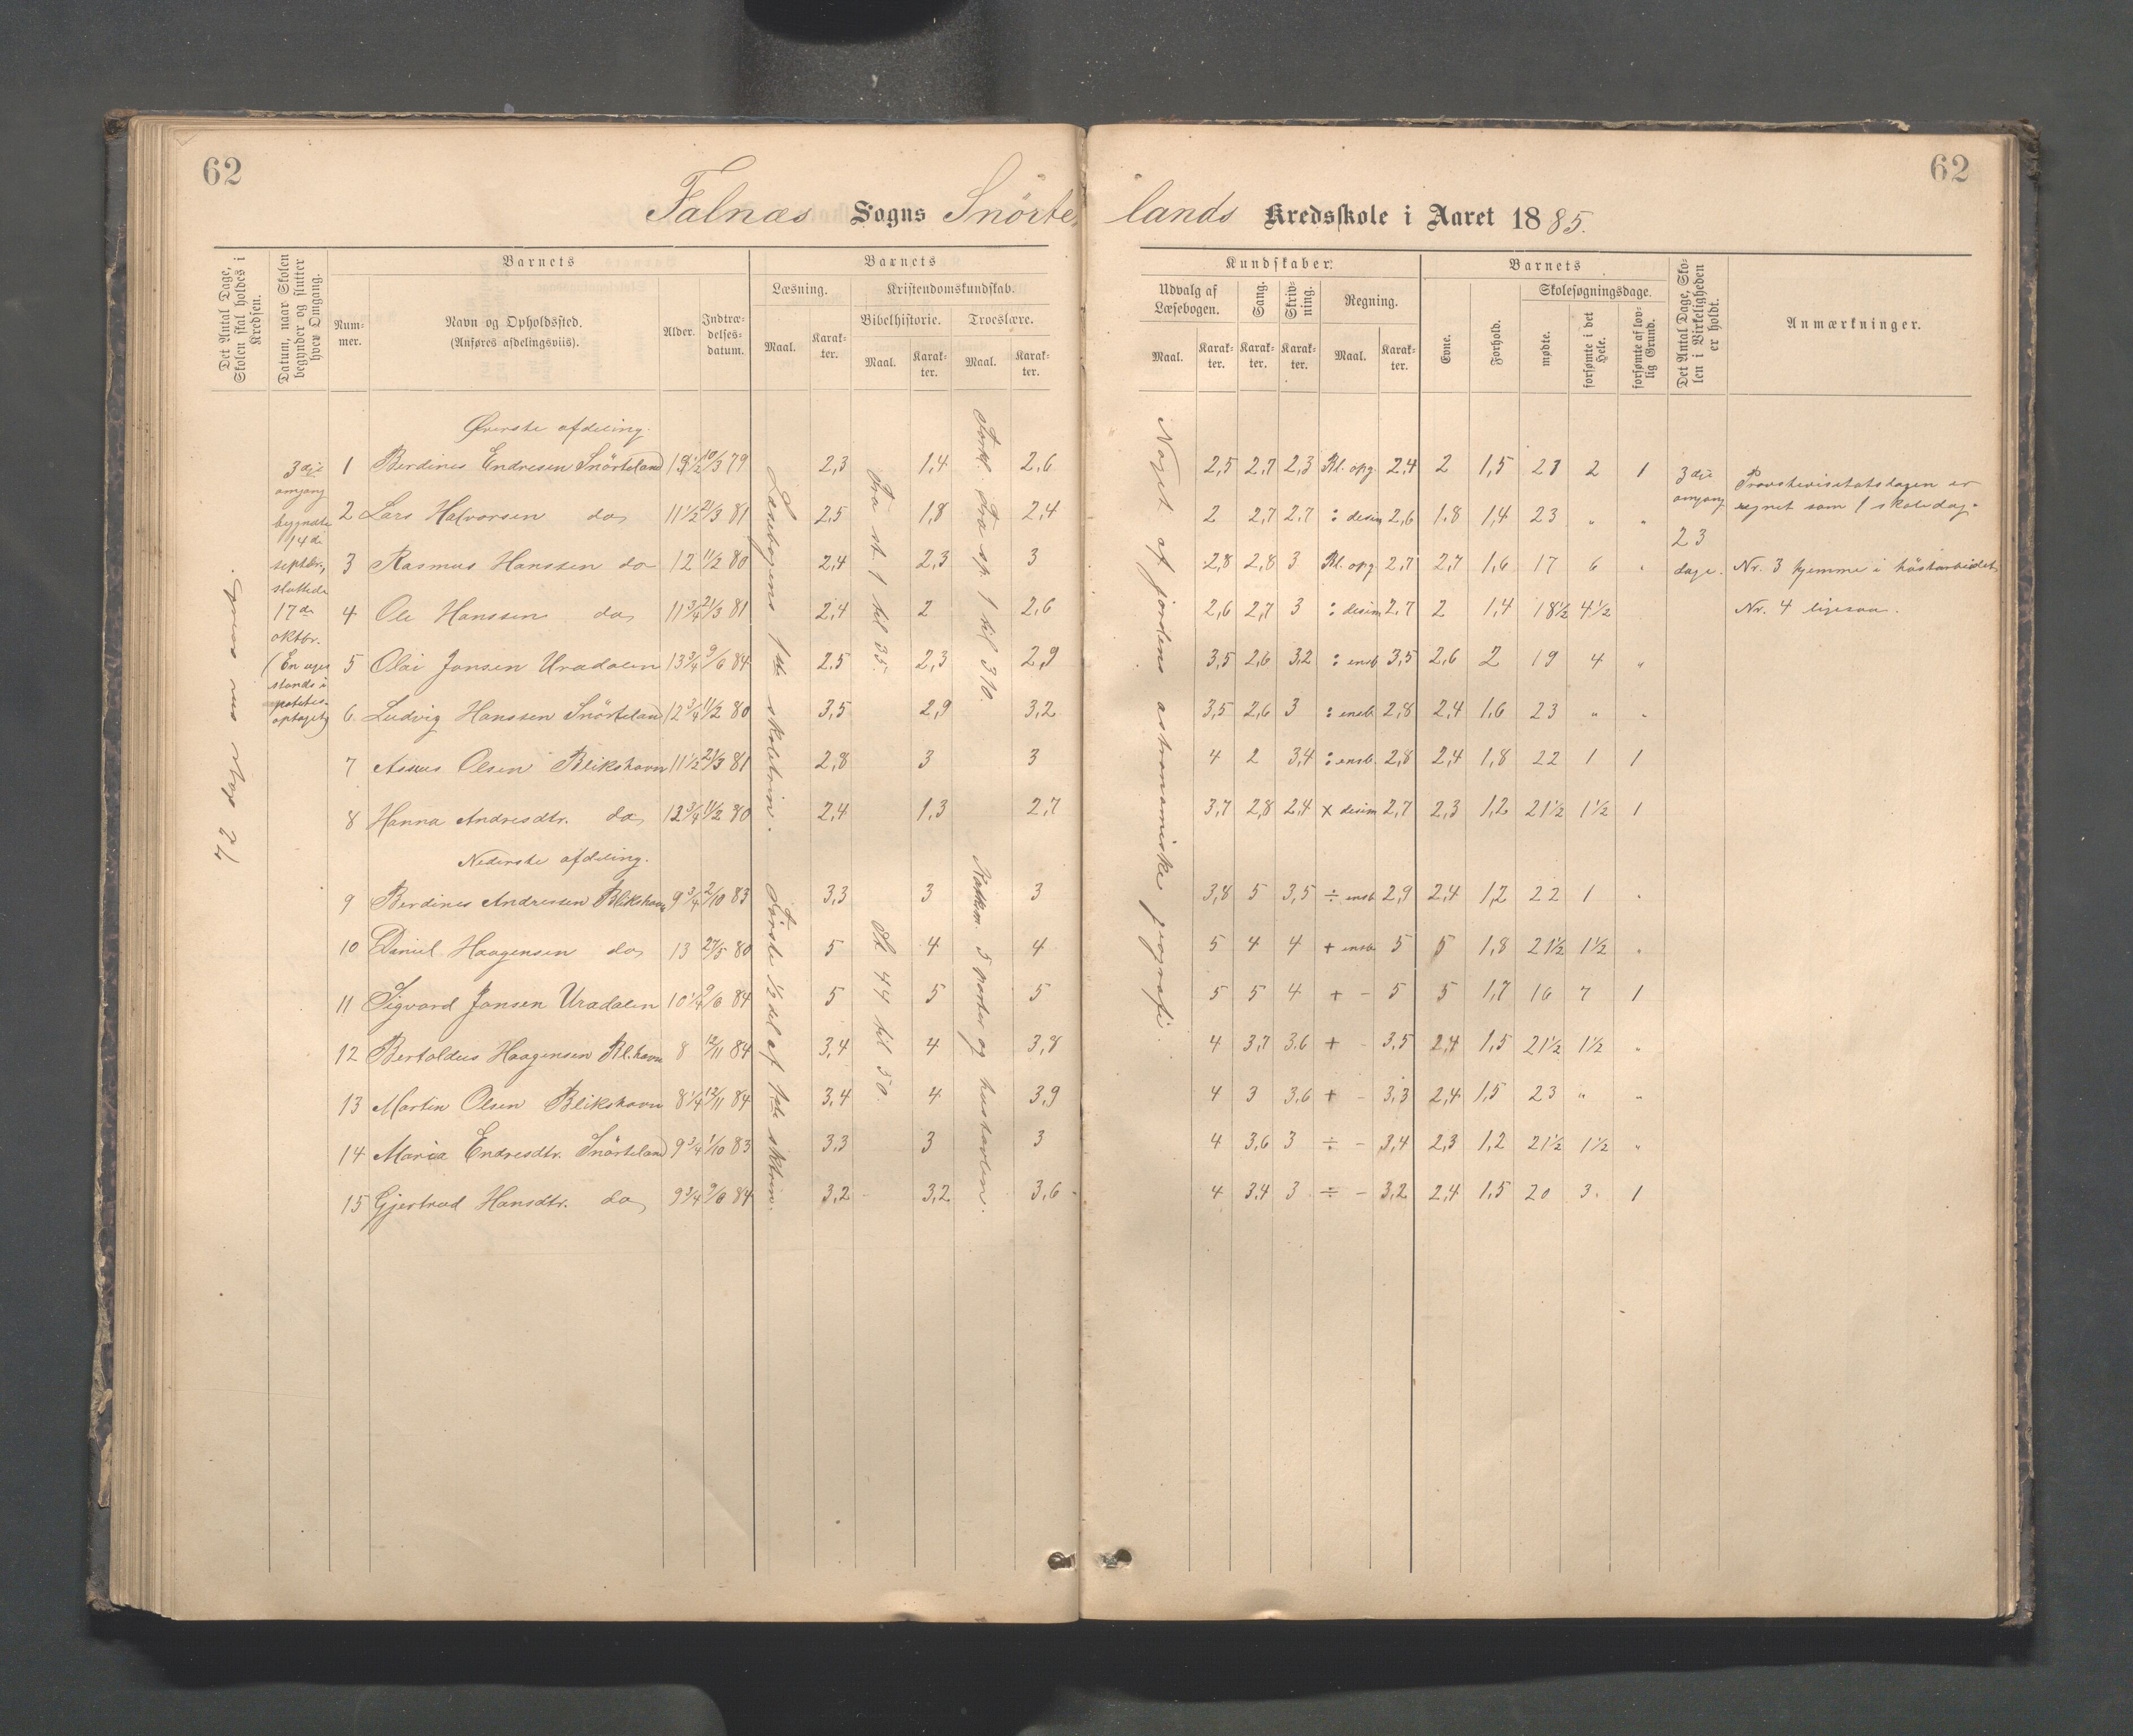 62
62
Falnæs Sogns Snörte lands Kredsskole i Aaret 1885.
Det Antal Dage, Skolen skal holdes i Kredsen.
Datum, naar Skolen begynder og slutter hver Omgang.
Barnets
Num-mer.
Navn og Opholdssted.
(Anføres afdelingsviis).
Alder.
Indtræ-delses-datum.
Barnets
Læsning.
Maal.
Karak-ter.
Kristendomskundskab.
Bibelhistorie.
Maal.
Karak-ter.
Troeslære.
Maal.
Karak-ter.
Kundskaber.
Udvalg af Læsebogen.
Maal.
Karak-ter.
Sang.
Karak-ter.
Skriv-ning.
Karak-ter.
Regning.
Maal.
Karak-ter.
Barnets
Evne.
Forhold.
Skolesøgningsdage.
mødte.
forsømte i det Hele.
forsømte af lov-lig Grund.
Det Antal Dage, Sko-len i Virkeligheden er holdt.
Anmærkninger.
72 dage
3die omgang begyndte 14de septbr., sluttede 17de oktbr.
Læsebogens 1ste skoletrin.
Fra st. 1 til 35.
Forkl. Fra sp. 1 til 310.
Noget af jordens astronomiske geografi.
3die omgang 23 dage.
Øverste afdeling.
1 Berdines Endresen Snörteland 13 1/2 10/3 79 2,3 1,4 2,6 2,5 2,7 2,3 Bl. opg. 2,4 2 1,5 21 2 1
Provstevisitatsdagen er regnet som 1 skoledag.
2 Lars Halvorsen do 11 1/2 21/3 81 2,5 1,8 2,4 2 2,7 2,7 : desim 2,6 1,8 1,4 23 " "
3 Rasmus Hanssen do 12 11/2 80 2,4 2,3 3 2,8 2,8 3 Bl. opg. 2,7 2,7 1,6 17 6 "
Nr. 3 hjemme i höstarbeidet
4 Ole Hanssen do 11 3/4 21/3 81 2,4 2 2,6 2,6 2,7 3 : desim 2,7 2 1,4 18 1/2 4 1/2
Nr. 4 ligesaa.
5 Olai Jansen Uradalen 13 3/4 9/6 84 2,5 2,3 2,9 3,5 2,6 3,2 : ensb 3,5 2,6 2 19 4 "
6 Ludvig Hanssen Snörteland 12 3/4 11/2 80 3,5 2,9 3,2 3,5 2,6 3 : ensb. 2,8 2,4 1,6 23 " "
7 Asmus Olsen Blikshavn 11 1/2 21/3 81 2,8 3 3 4 2 3,4 : ensb. 2,8 2,4 1,8 22 1 1
8 Hanna Andresdtr. do 12 3/4 11/2 80 2,4 1,3 2,7 3,7 2,8 2,4 x desim 2,7 2,3 1,2 21 1/2 1 1/2 1
Nederste afdeling.
Første 1/2 del af 1ste sktrin.
St. 44 til 50.
Katkm. 5 parter og hustavlen.
9 Berdines Andressen Blikshavn 9 3/4 2/10 83 3,3 3 3 3,8 5 3,5 ÷ ensb. 2,9 2,4 1,2 22 1 "
10 Daniel Haagensen do 13 27/5 80 5 4 4 5 4 4 + ensb 5 5 1,8 21 1/2 1 1/2 "
11 Sigvard Jansen Uradalen 10 1/4 9/6 84 5 5 5 5 5 4 + - 5 5 1,7 16 7 1
12 Bertoldus Haagensen Bl.havn 8 12/11 84 3,4 4 3,8 4 3,7 3,6 + - 3,5 2,4 1,5 21 1/2 1 1/2 "
13 Martin Olsen Blikshavn 8 1/4 12/11 84 3,4 4 3,9 4 3 3,6 + - 3,3 2,4 1,5 23 " "
14 Maria Endresdtr. Snörteland 9 3/4 1/10 83 3,3 3 3 4 3,6 3 ÷ - 3,4 2,3 1,2 21 1/2 1 1/2 "
15 Gjertrud Hansdtr. do 9 3/4 9/6 84 3,2 3,2 3,6 4 3,4 3 ÷ - 3,2 2,4 1,5 20 3 1